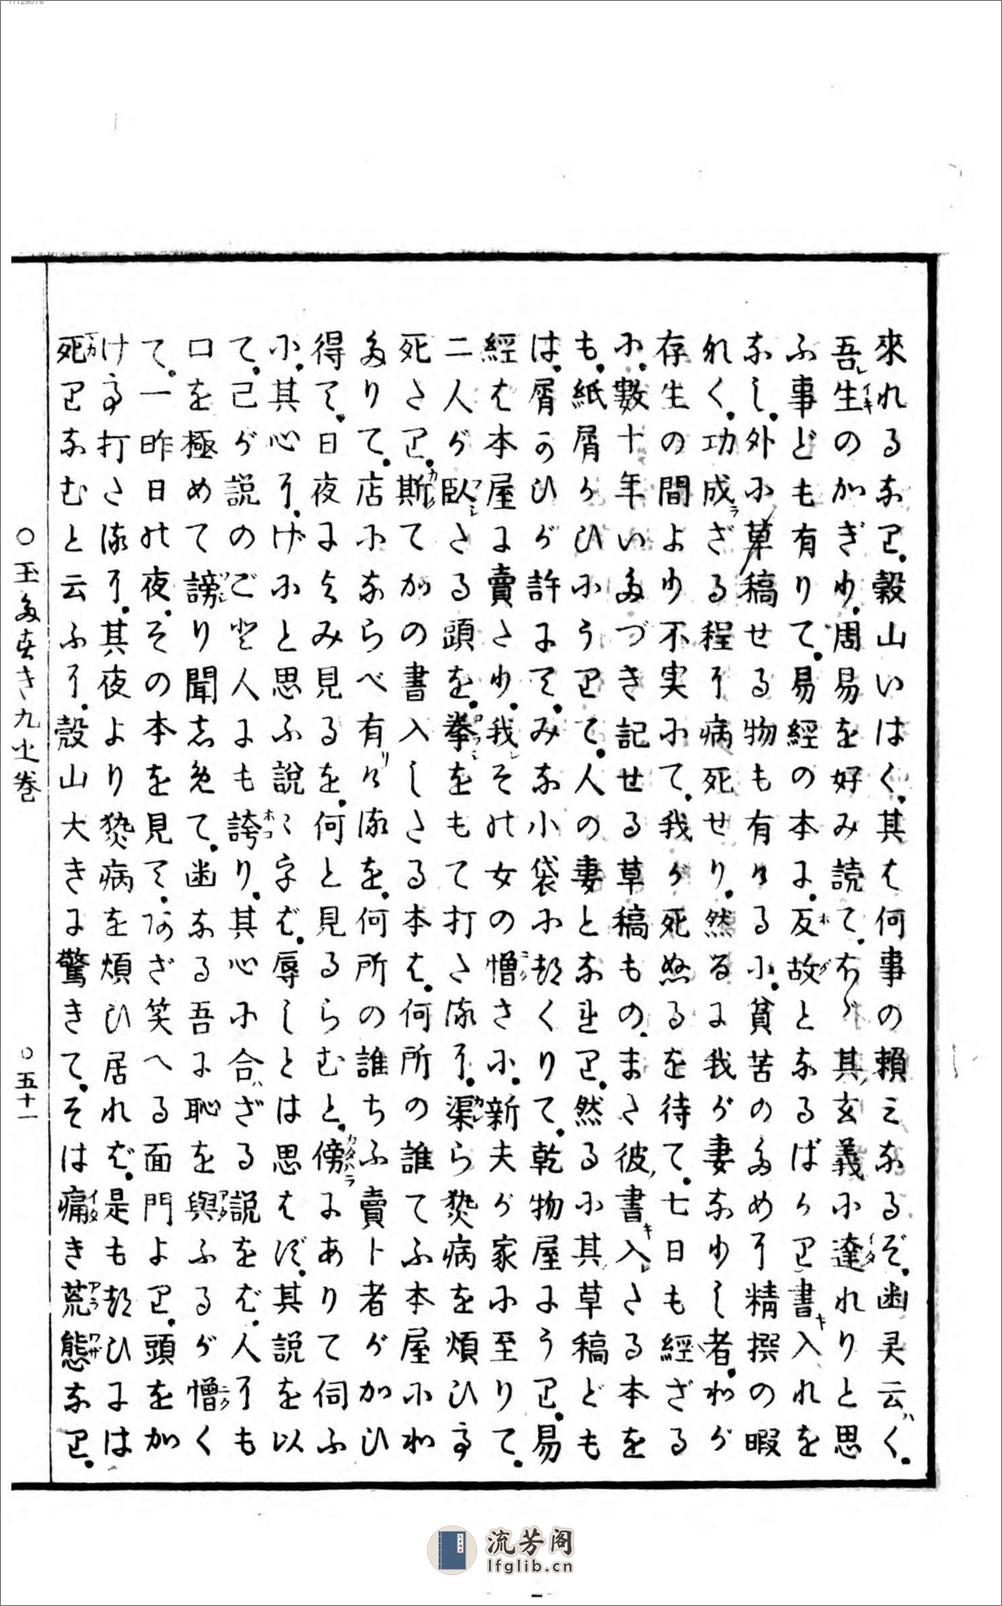 來れるなり。穀山いはく。其は何事の頼みなるぞ。幽灵云く。
吾生のかぎり。周易を好み読て。わが其玄義に達れりと思
ふ事ども有りて。易經の本に。反故となるばかり書入れを
なし。外に草稿せる物も有けるに。貧苦のために精撰の暇
なく。功成ざる程に病死せり。然るに我が妻なりし者。わが
存生の間より不実にて。我が死ぬるを待て。七日も經ざる
に。數十年いたづき記せる草稿もの。また彼書入したる本を
も。紙屑かひにうりて。人の妻となれり。然るに其草稿ども
は。屑かひが許にて。みな小袋に却くりて。乾物屋にうり。易
經は本屋に賣たり。我レその女の憎さに。新夫が家に至りて。
二人が臥さる頭を。拳をもて打たるに。渠ら𤍠病を煩ひて
死たり。斯てかの書入したる本は。何所の誰てふ本屋にか
ありて。店にならべ有ける。何所の誰ちふ賣卜者がかひ
得て。日夜によみ見るを。何と見るらむと。傍にありて伺ふ
に。其心に。げにと思ふ説〻字は。辱しとは思はず。其説を以
て。己が説のごと人にも誇り。其心に合ざる説をば。人にも
口を極めて謗り聞しめて。幽なる吾に恥を與ふるが憎く
て。一昨日の夜。その本を見て。あざ笑へる面門より。頭をか
け打たるに。其夜より𤍠病を煩ひ居れば。是も却ひには
死りなむと云ふに。穀山大きに驚きて。そは痛き荒態なり。
○玉たすき九之巻 ○五十一
流芳阁
lfglib.cn
11129078